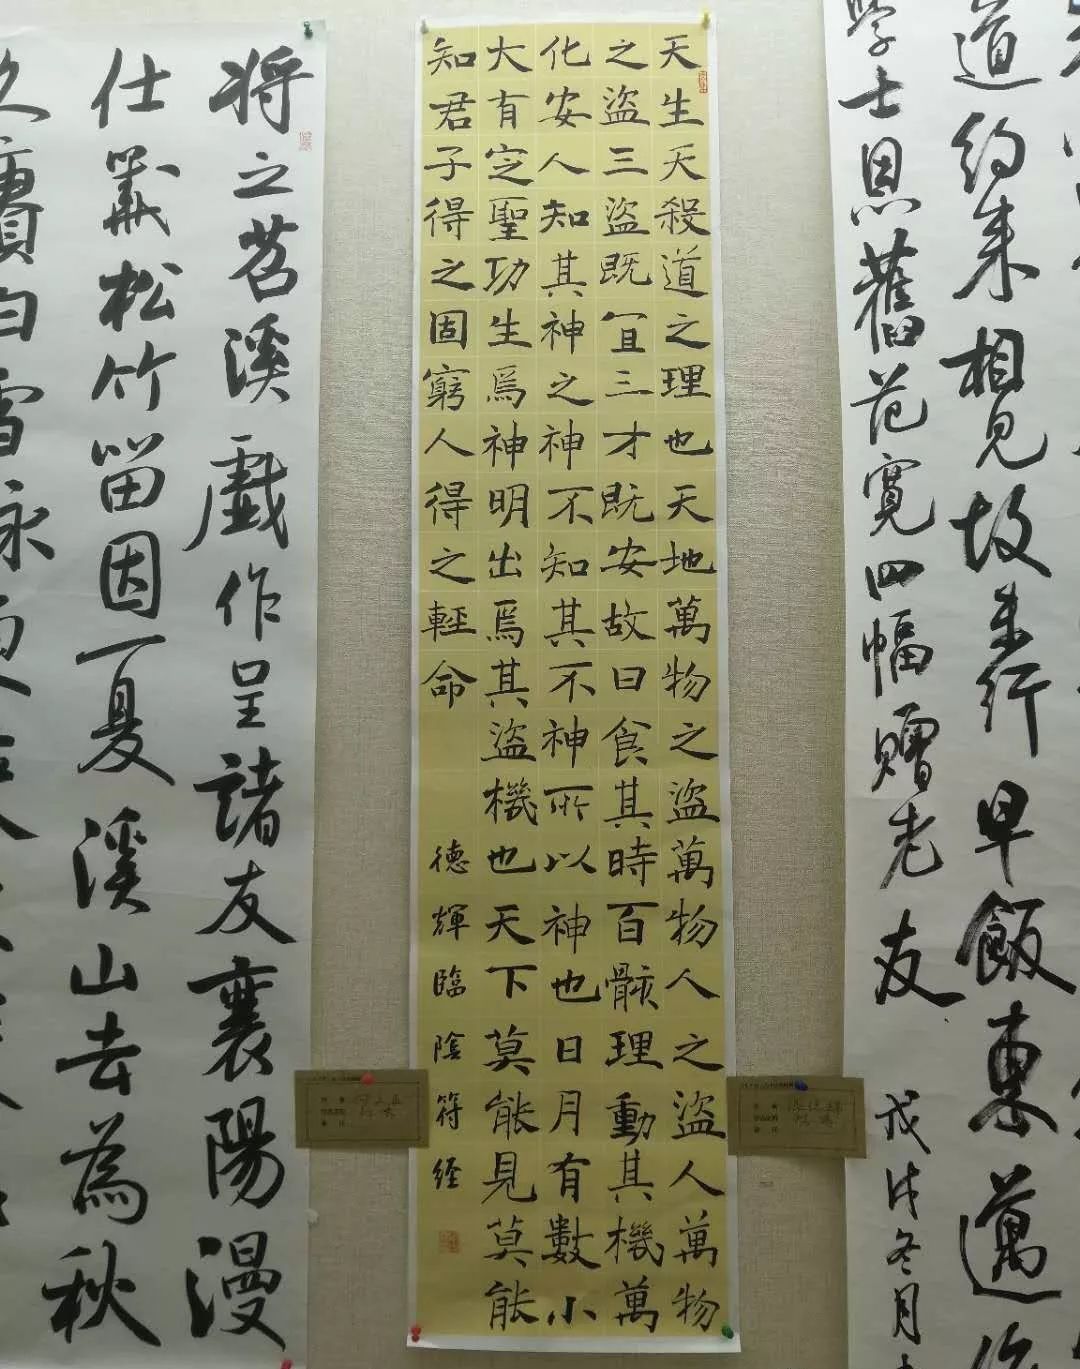 道約来相見故未行早飯東邁作
學士恩舊范寬四幅贈老友
戊戌冬月
天生天殺道之理也天地萬物之盜萬物人之盜人萬物
之盜三盜既宜三才既安故曰食其時百骸理動其機萬
化安人知其神之神不知其不神所以神也日月有數小
大有定聖功生焉神明出焉其盜機也天下莫能見莫能
知君子得之固窮人得之輕命
德輝臨陰符经
將之苕溪戲作呈諸友襄陽漫
仕黻松竹留因夏溪山去為秋
久賡白雪詠更